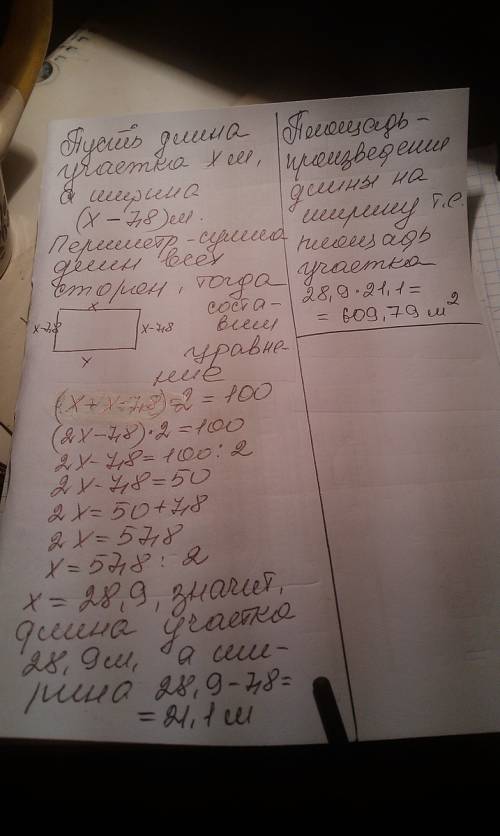 Пусть длина
участка x м,
а ширина
(x - 7,8) м.
Периметр - сумма
длин всех
сторон, тогда
соста-
вим
уравне-
ние
x
x-7,8
x-7,8
x
(x + x - 7,8) · 2 = 100
(2x - 7,8) · 2 = 100
2x - 7,8 = 100 : 2
2x - 7,8 = 50
2x = 50 + 7,8
2x = 57,8
x = 57,8 : 2
x = 28,9, значит,
длина участка
28,9 м, а ши-
рина 28,9 - 7,8 =
= 21,1 м
Площадь -
произведение
длины на
ширину т.е.
площадь
участка
28,9 · 21,1 =
= 609,79 м²